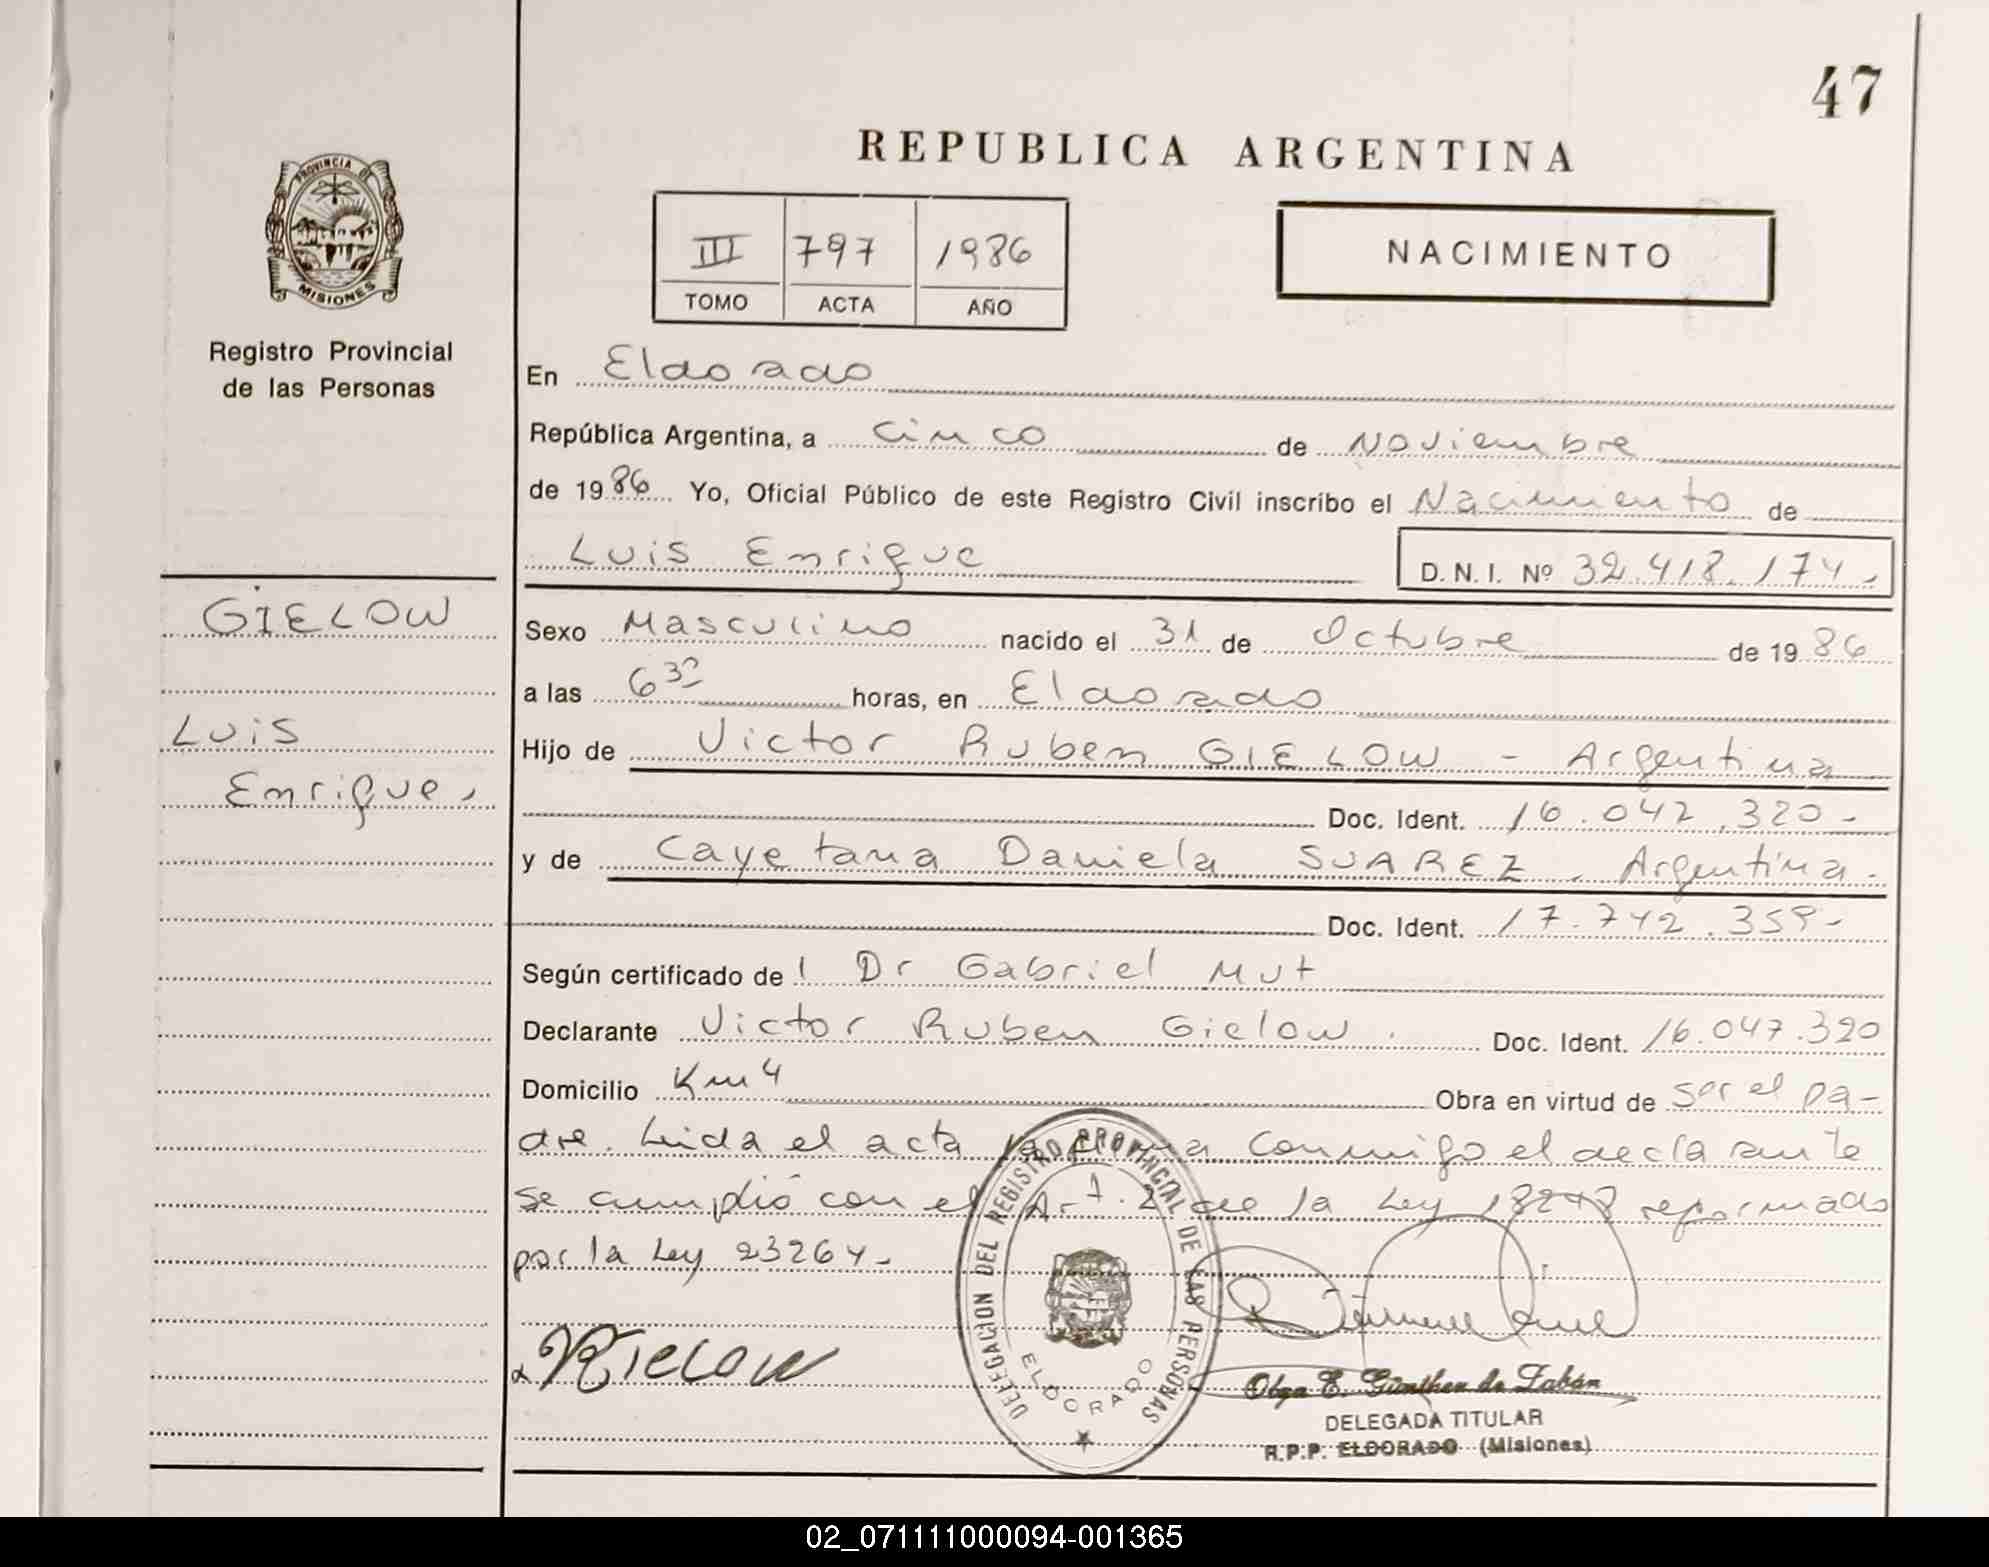 47
REPUBLICA ARGENTINA
PROVINCIA DE
MISIONES
III 797 1986
TOMO ACTA AÑO
NACIMIENTO
Registro Provincial
de las Personas
GIELOW
Luis
Enrique.
En Eldorado
República Argentina, a Cinco de Noviembre
de 1986 Yo, Oficial Público de este Registro Civil inscribo el Nacimiento de
Luis Enrique
D.N.I. Nº 32.418.174.
Sexo Masculino nacido el 31 de Octubre de 1986
a las 6 30 horas, en Eldorado
Hijo de Victor Ruben GIELOW - Argentina
Doc. Ident. 16.042.320-
y de Cayetana Daniela SUAREZ. Argentina.
Doc. Ident. 17.742.359-
Según certificado de l Dr Gabriel Mut
Declarante Victor Ruben Gielow. Doc. Ident. 16.047.320
Domicilio Km 4 Obra en virtud de ser el pa-
dre. Leida el acta la firma conmigo el declarante
se cumplió con el Art. 2 de la Ley 18248 reformado
por la Ley 23264-
Gielow
DELEGACION DEL REGISTRO PROVINCIAL DE LAS PERSONAS
ELDORADO
Olga E. Günther de Zabán
DELEGADA TITULAR
R.P.P. ELDORADO (Misiones)
02_071111000094-001365